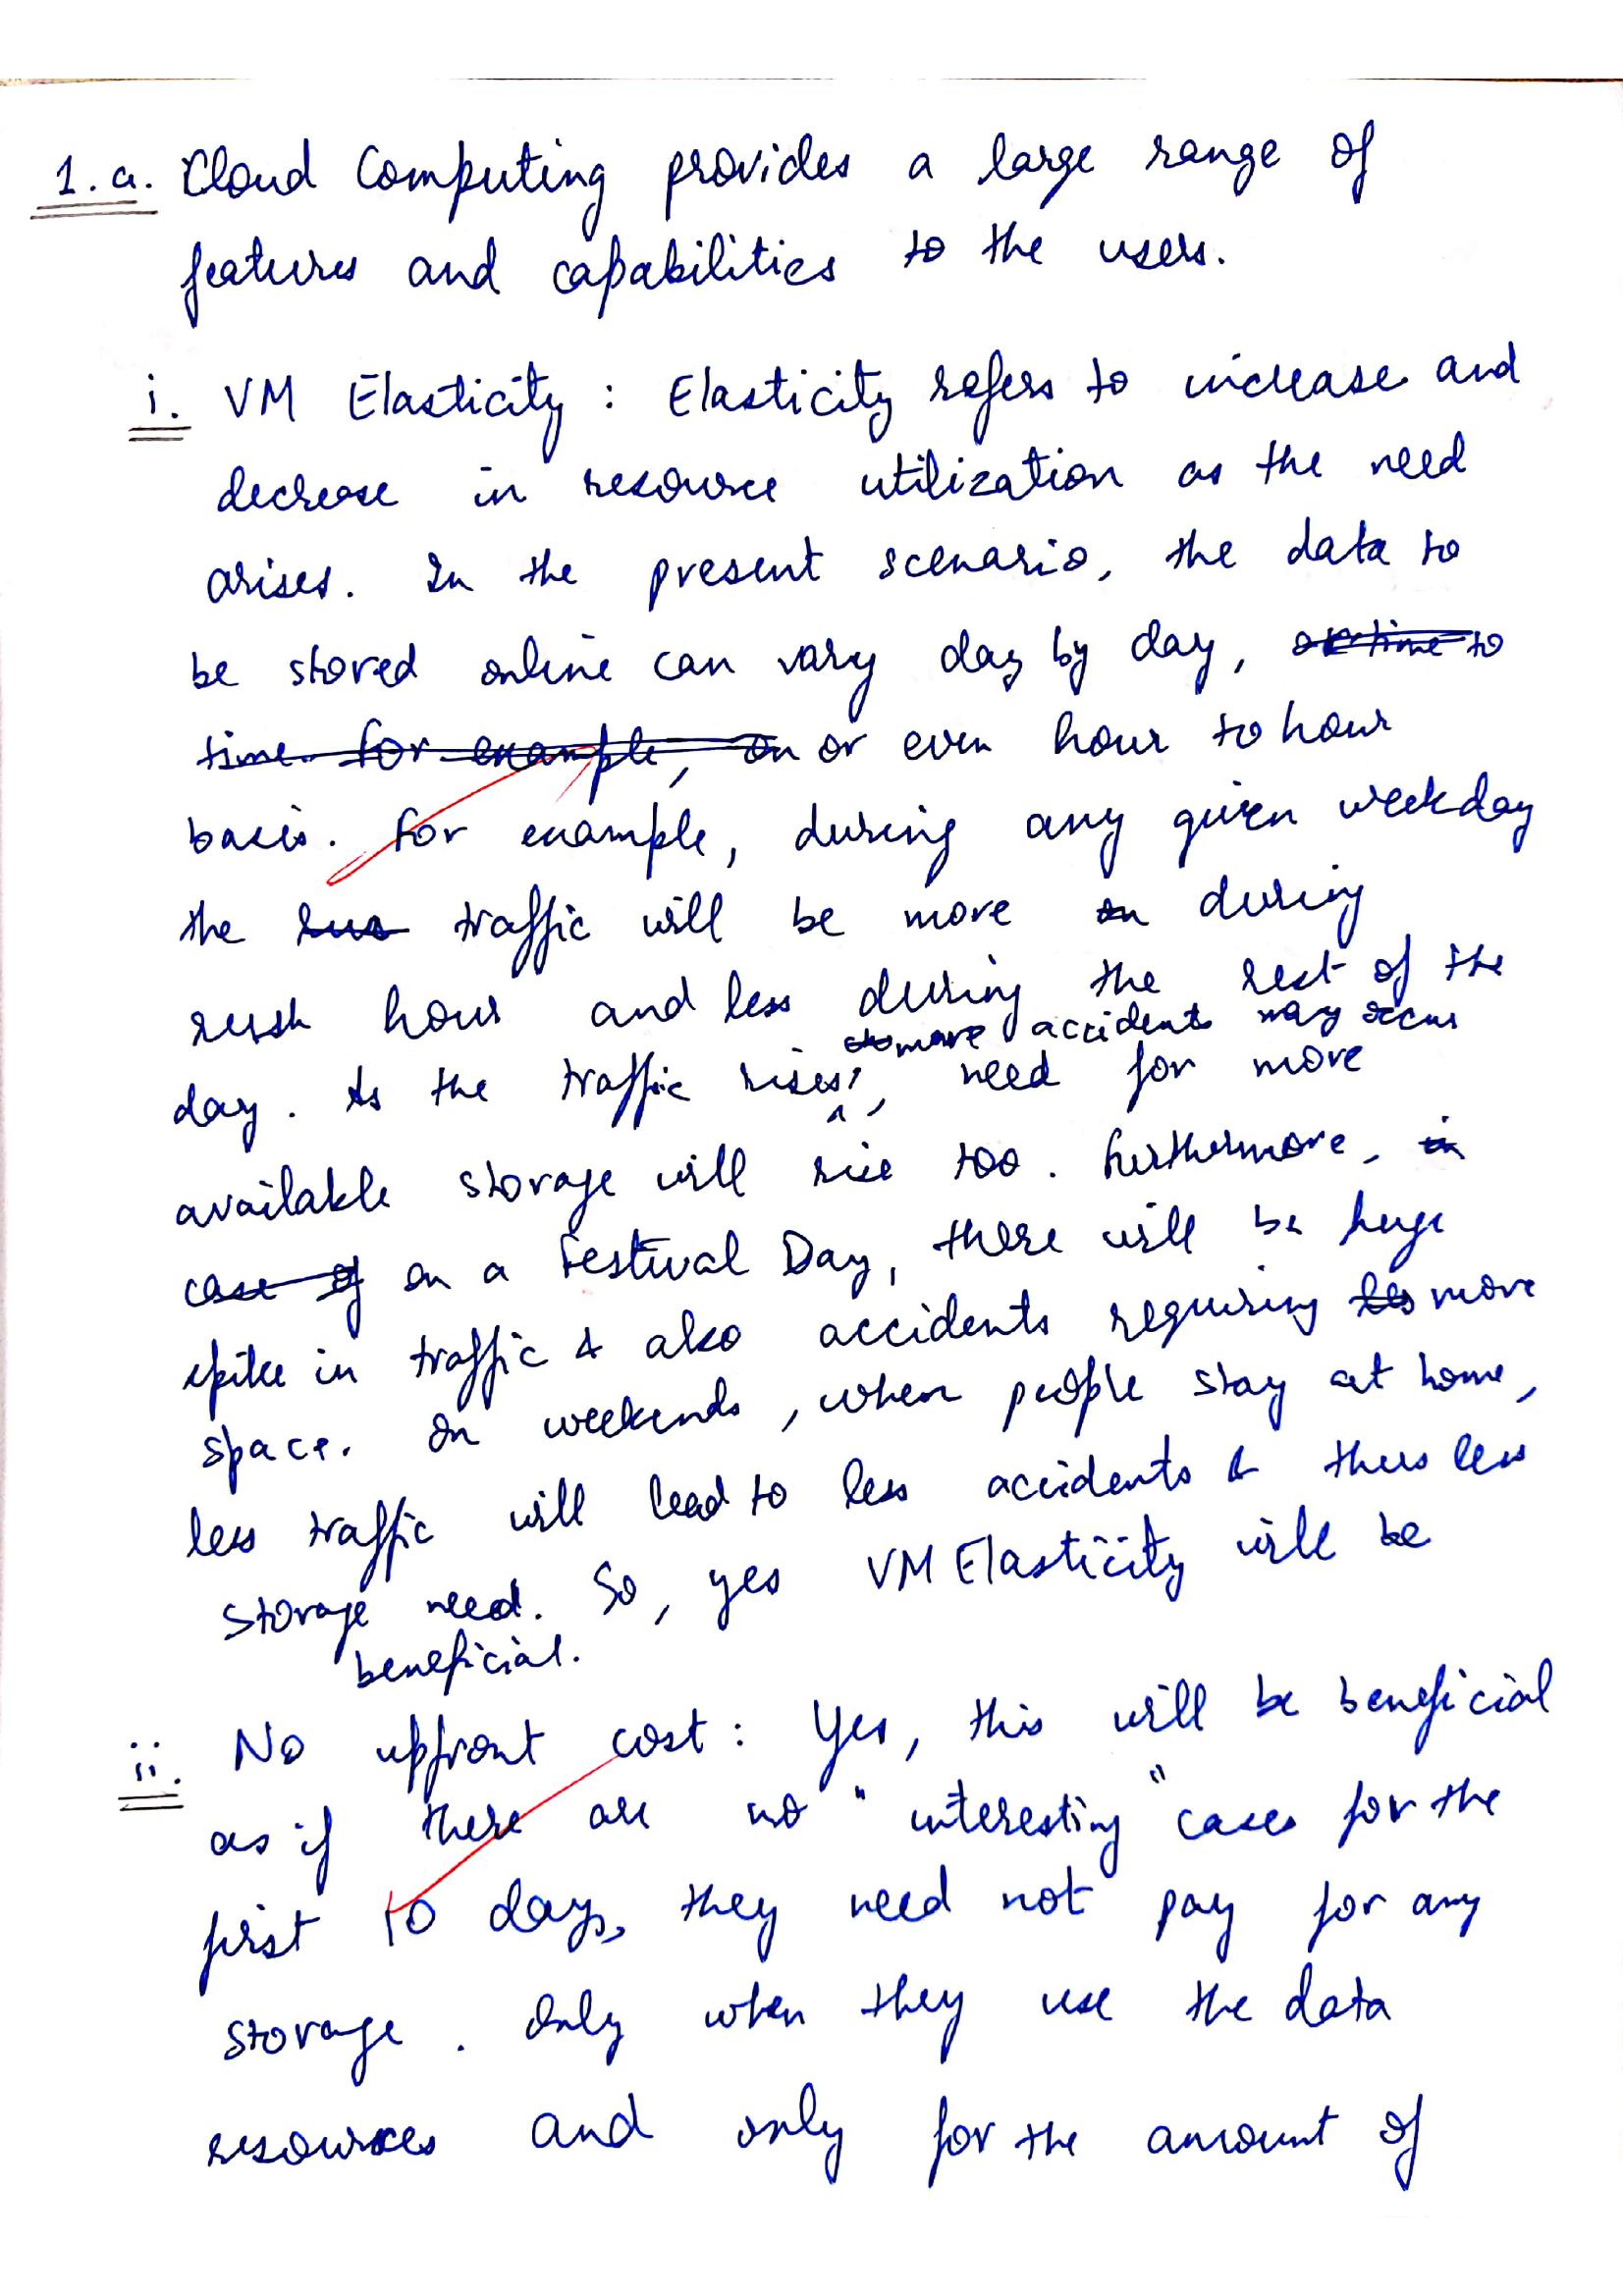 1. a. Cloud Computing provides a large range of
features and capabilities to the users.
i. VM Elasticity : Elasticity refers to increase and
decrease in resource utilization as the need
arises. In the present scenario, the data to
be stored online can vary day by day, or time to
time. for example, on or even hour to hour
basis. For example, during any given weekday
the traffic will be more on during
rush hour and less during the rest of the
more accidents may occur
day. As the traffic rises, need for more
available storage will rise too. Furthermore, in
case of on a Festival Day, there will be huge
spike in traffic & also accidents requiring less more
space. On weekends, when people stay at home,
less traffic will lead to less accidents & thus less
storage need. So, yes VM Elasticity will be
beneficial.
ii. No upfront cost : Yes, this will be beneficial
as if there are no "interesting" cases for the
first 10 days, they need not pay for any
storage. Only when they use the data
resources and only for the amount of